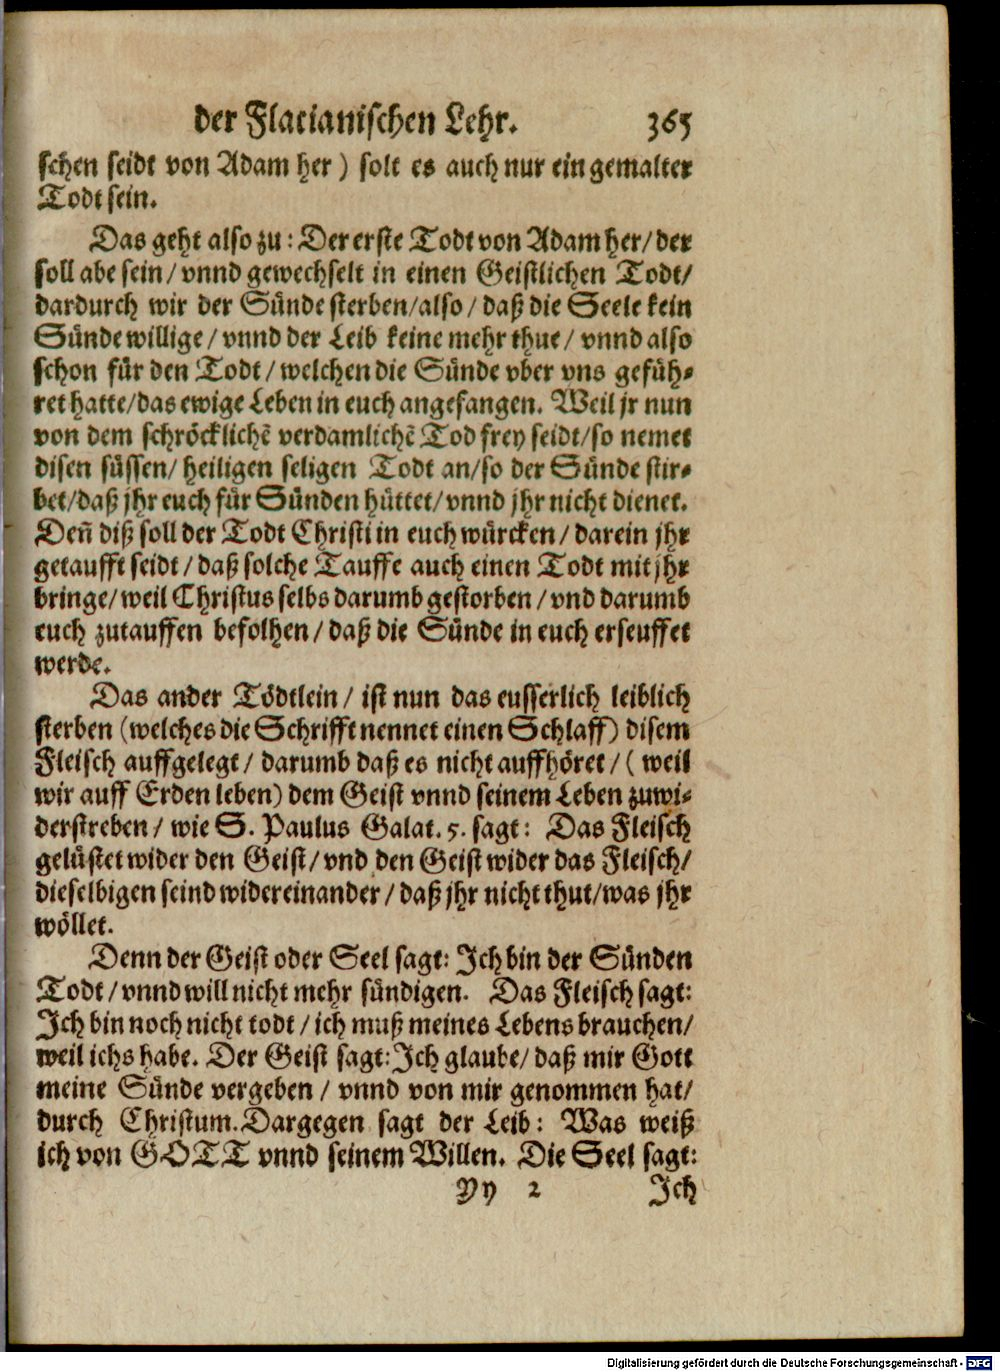 der Flacianischen Lehr. 365
schen seidt von Adam her) solt es auch nur ein gemalter
Todt sein.
Das geht also zu: Der erste Todt von Adam her/ der
soll abe sein/ vnnd gewechselt in einen Geistlichen Todt/
dardurch wir der Sünde sterben/also/ daß die Seele kein
Sünde willige/ vnnd der Leib keine mehr thue/ vnnd also
schon für den Todt/ welchen die Sünde vber vns gefüh⸗
ret hatte/das ewige Leben in euch angefangen. Weil jr nun
von dem schröcklichē verdamlichē Tod frey seidt/so nemet
disen süssen/ heiligen seligen Todt an/so der Sünde stir⸗
bet/daß jhr euch für Sünden hüttet/vnnd jhr nicht dienet.
Deñ diß soll der Todt Christi in euch würcken/ darein jhr
getaufft seidt/ daß solche Tauffe auch einen Todt mit jhr
bringe/weil Christus selbs darumb gestorben/vnd darumb
euch zutauffen befolhen/ daß die Sünde in euch erseuffet
werde.
Das ander Tödtlein/ ist nun das eusserlich leiblich
sterben (welches die Schrifft nennet einen Schlaff) disem
Fleisch auffgelegt/ darumb daß es nicht auffhöret/( weil
wir auff Erden leben) dem Geist vnnd seinem Leben zuwi⸗
derstreben/ wie S. Paulus Galat. 5. sagt: Das Fleisch
gelüstet wider den Geist/vnd den Geist wider das Fleisch/
dieselbigen seind widereinander/ daß jhr nicht thut/was jhr
wöllet.
Denn der Geist oder Seel sagt: Ich bin der Sünden
Todt/vnnd will nicht mehr sündigen. Das Fleisch sagt:
Ich bin noch nicht todt/ich muß meines Lebens brauchen/
weil ichs habe. Der Geist sagt: Ich glaube/ daß mir Gott
meine Sünde vergeben/ vnnd von mir genommen hat/
durch Christum. Dargegen sagt der Leib: Was weiß
ich von GOTT vnnd seinem Willen. Die Seel sagt:
Yy 2 Ich
Digitalisierung gefördert durch die Deutsche Forschungsgemeinschaft - DFG